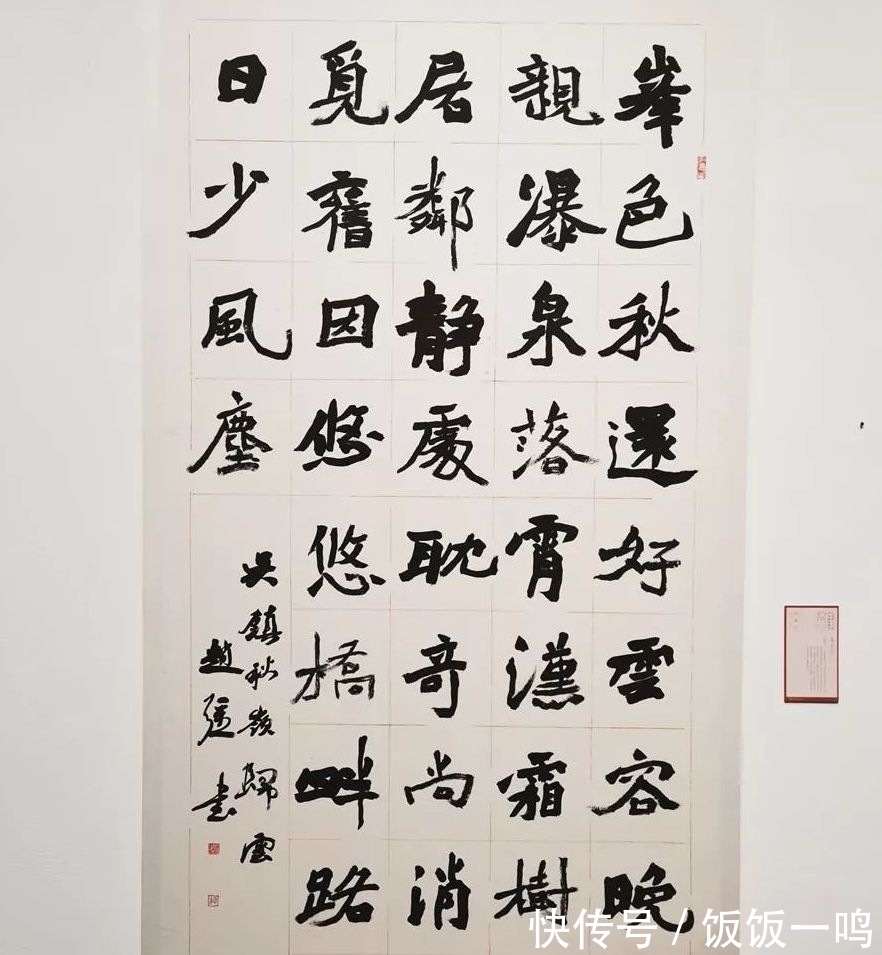 峯色秋還好雲容晚
親瀑泉落霄漢霜樹
居鄰靜處耽奇尚消
覓舊因悠悠橋畔路
日少風塵
吳鎮秋嶺歸雲
趙彊書
快传号 / 饭饭一鸣